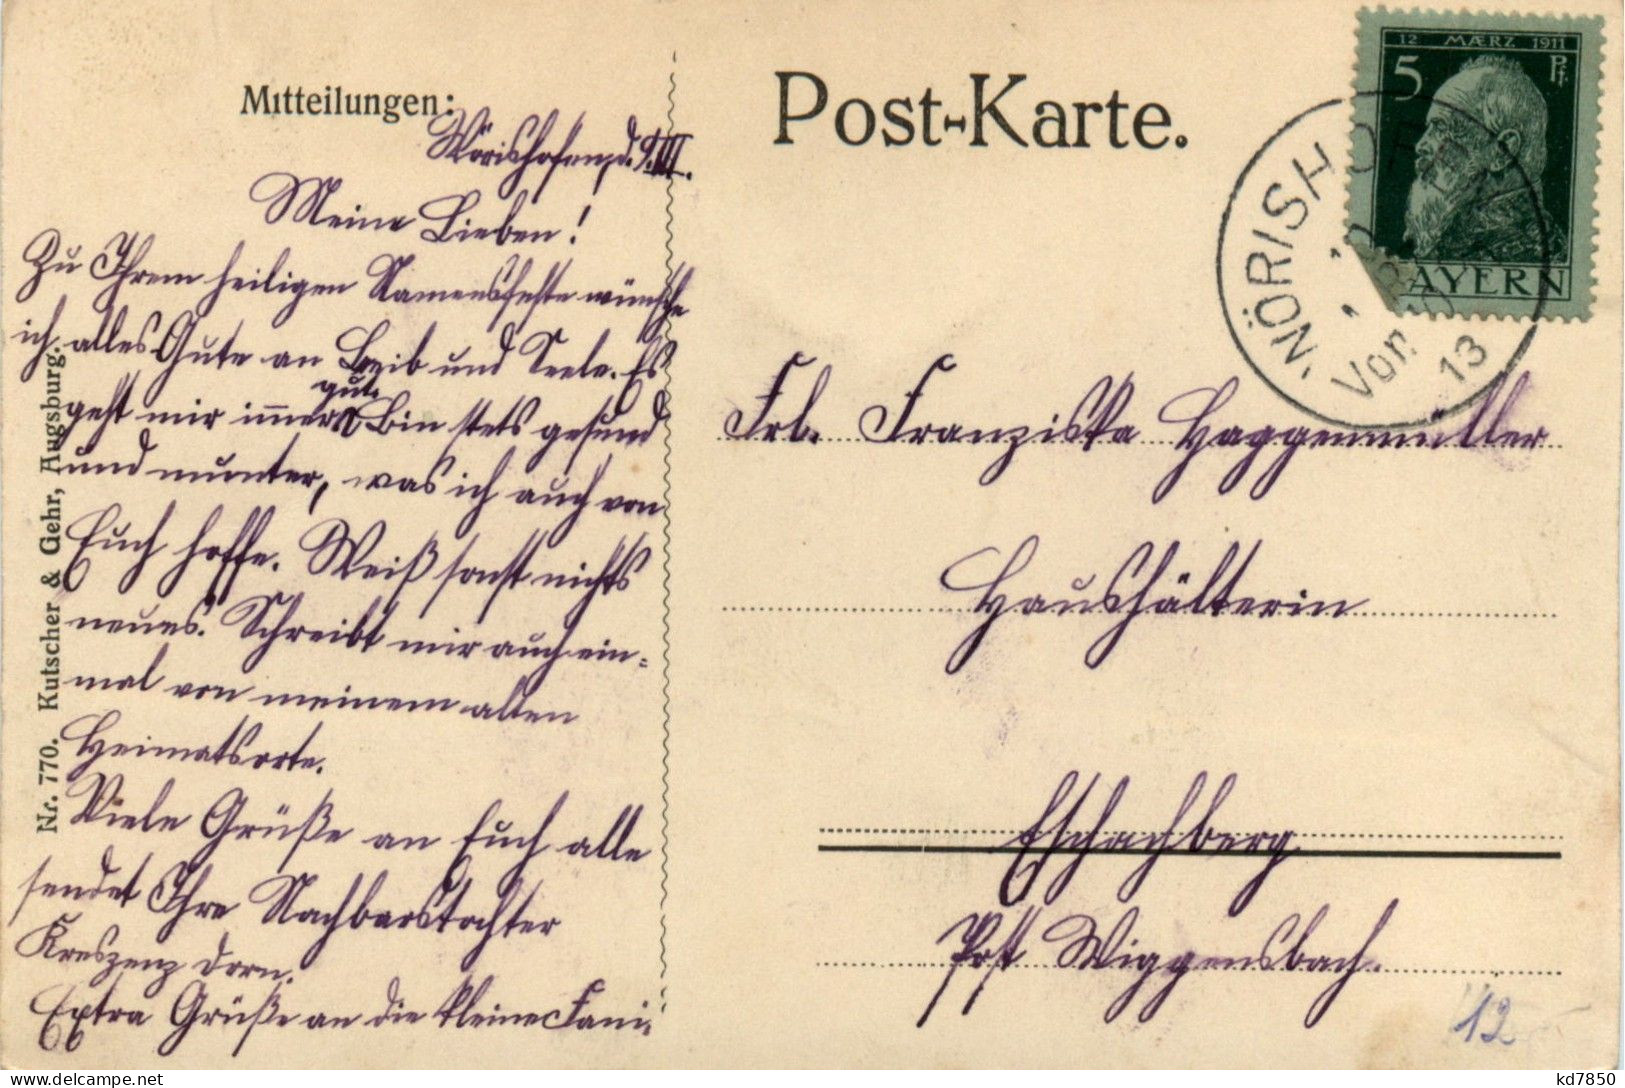 Mitteilungen:
Wörishofen, d. 9. III.
Meine Lieben!
Zu Ihrem heiligen Namensfeste wünsche
ich alles Gute an Leib und Seele. Es
geht mir immer gut. Bin stets gesund
und munter, was ich auch von
Euch hoffe. Weiß sonst nichts
neues. Schreibt mir auch ein-
mal von meinem alten
Heimatsorte.
Viele Grüße an Euch alle
sendet Ihre Nachbarstochter
Kreszenz Dorn.
Extra Grüße an die kleine Fani.
Nr. 770. Kutscher & Gehr, Augsburg.
Post-Karte.
12 MÆRZ 1911
5 Pf.
BAYERN
WÖRISHOFEN
Vor.
13
Frl. Franziska Haggenmüller
Haushälterin
Eschachberg
Post Wiggensbach.
12
kd7850